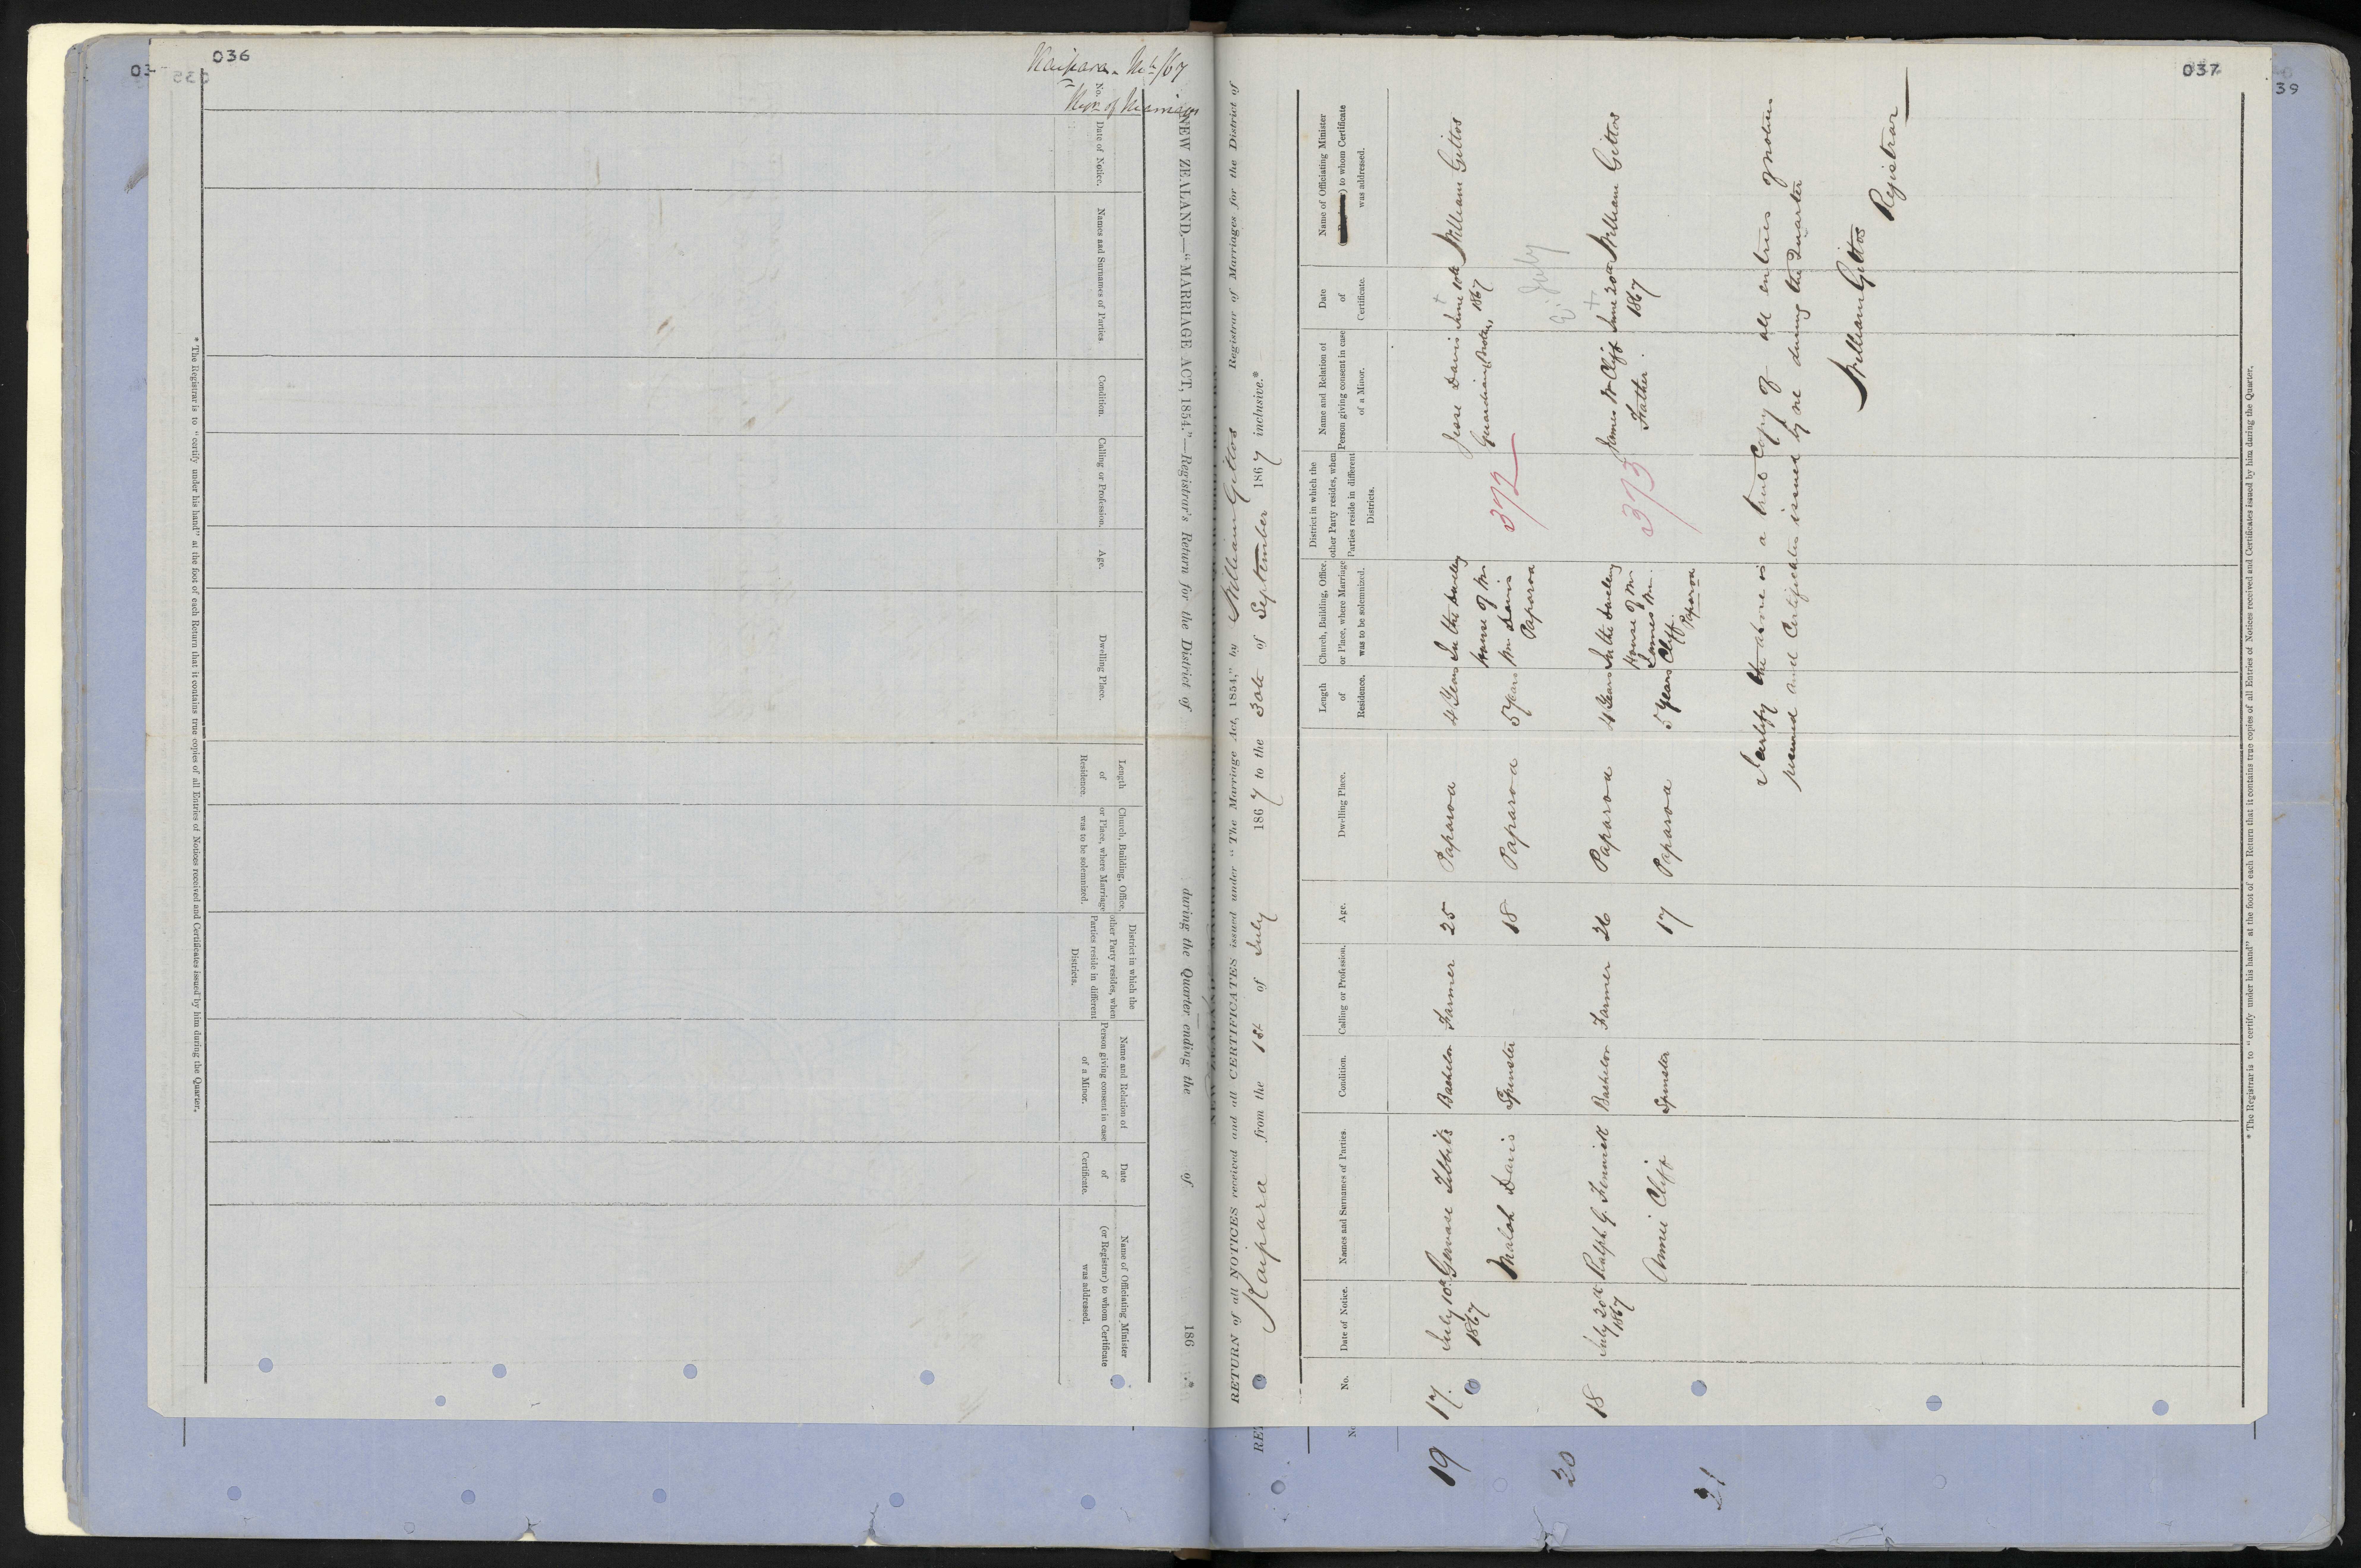 036
Kaipara
NEW ZEALAND.—"MARRIAGE ACT, 1854."—Registrar's Return for the District of during the Quarter ending the of 186 .*
No.
Date of Notice.
Names and Surnames of Parties.
Condition.
Calling or Profession.
Age.
Dwelling Place.
Length
of
Residence.
Church, Building, Office,
or Place, where Marriage
was to be solemnized.
District in which the
other Party resides, when
Parties reside in different
Districts.
Name and Relation of
Person giving consent in case
of a Minor.
Date
of
Certificate.
Name of Officiating Minister
(or Registrar) to whom Certificate
was addressed.
* The Registrar is to "certify under his hand" at the foot of each Return that it contains true copies of all Entries of Notices received and Certificates issued by him during the Quarter.
037
39
RETURN of all NOTICES received and all CERTIFICATES issued under "The Marriage Act, 1854," by William Gittos Registrar of Marriages for the District of
Kaipara from the 1st of July 1867 to the 30th of September 1867 inclusive.*
No.
Date of Notice.
Names and Surnames of Parties.
Condition.
Calling or Profession.
Age.
Dwelling Place.
Length
of
Residence.
Church, Building, Office,
or Place, where Marriage
was to be solemnized.
District in which the
other Party resides, when
Parties reside in different
Districts.
Name and Relation of
Person giving consent in case
of a Minor.
Date
of
Certificate.
Name of Officiating Minister
to whom Certificate
was addressed.
17. July 10th Gervase Tibbits Bachelor Farmer 25 Paparoa 4 Years In the dwelling Jesse Davis June 10th William Gittos
1867 house of Mr Guardian 1867
Malah Davis Spinster 18 Paparoa 5 Years Wm Davis 372
Paparoa
18 July 20th Ralph G. Fenwick Bachelor Farmer 26 Paparoa 4 Years In the dwelling James W Cliff June 20th William Gittos
1867 House of Mr Father 1867
Annie Cliff Spinster 17 Paparoa 5 Years James Wm. 373
Cliff.
Paparoa
July
I certify the above is a true Copy of all entries of notices
received and Certificates issued by me during the Quarter
William Gittos
Registrar
* The Registrar is to "certify under his hand" at the foot of each Return that it contains true copies of all Entries of Notices received and Certificates issued by him during the Quarter.
19
20
21